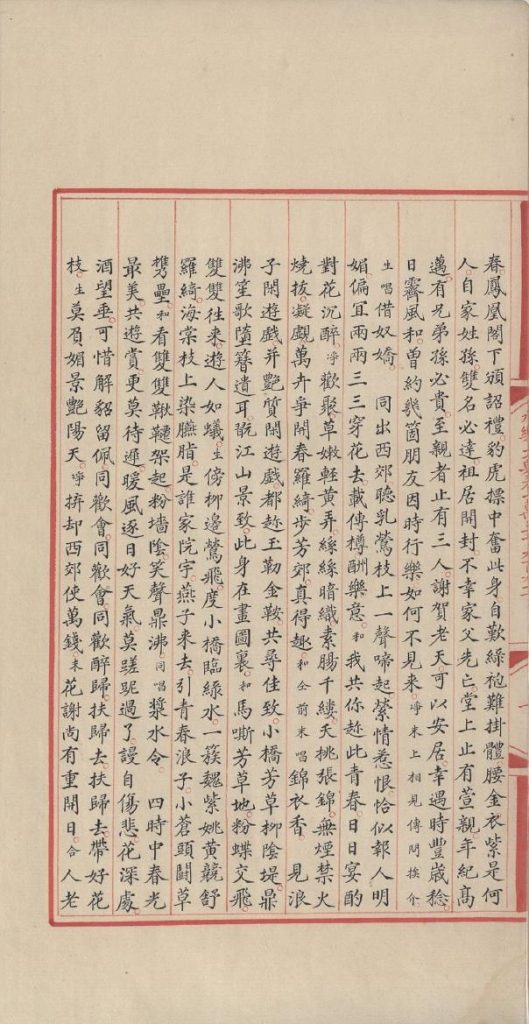 春鳳凰閣下頒詔禮豹虎摽中奮此身自歎綠袍難掛體腰金衣紫是何
人自家姓孫雙名必達祖居開封不幸家父先亡堂上止有萱親年紀高
邁有兄弟孫必貴至親者止有三人謝賀老天可以安居幸遇時豐歲稔
日霽風和曽約㡬箇朋友因時行樂如何不見來淨末上相見傳問挨介
生唱借奴嬌 同出西郊聽乳鶯枝上一聲啼起縈情惹恨恰似報人明
媚偏宜兩兩三三穿花去載傳樽酬樂意和我共你趂此青春日日宴酌
對花沉醉淨歡聚草嫩輕黄弄絲絲暗織素腸千縷夭桃張錦無煙禁火
燒拔凝覷萬卉爭開春羅綺步芳郊真得趣和仝前末唱錦衣香 見浪
子閑遊戲并艷質閑遊戲都趂玉勒金鞍共尋佳致小橋芳草柳陰堤鼎
沸笙歌墮簪遺耳翫江山景致此身在畫圖裏和馬嘶芳草地粉蝶交飛
雙雙往来遊人如蟻生傍柳邊鶯飛度小橋臨綠水一簇魏紫姚黄競舒
羅綺海棠枝上染臙脂是誰家院宇燕子来去引青春浪子小蒼頭鬭草
携壘和看雙雙鞦韆架起粉墻陰笑聲鼎沸同唱漿水令 四時中春光
最美共遊賞更莫待遲暖風逐日好天氣莫蹉跎過了謾自傷悲花深處
酒望垂可惜解貂留佩同歡會同歡會同歡醉歸扶歸去扶歸去帶好花
枝生莫負媚景艷陽天淨拚却西郊使萬錢末花謝尚有重開日合人老